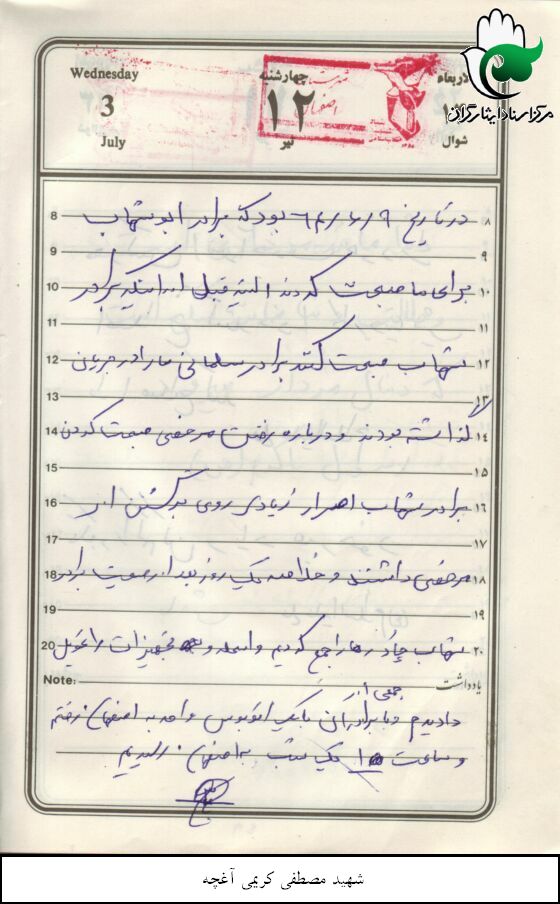 مرکز اسناد ایثارگران
Wednesday
3
July
چهارشنبه
۱۲
تیر
اصفهان
لاربعاء
شوال
8 در تاریخ ۶۴/۶/۹ بود که برادر ابوشهاب ۸
9 ۹
10 برای ما صحبت کردند البته قبل از اینکه برادر ۱۰
11 ۱۱
12 شهاب صحبت کند برادر سلمانی ما را در جریان ۱۲
13 ۱۳
14 گذاشته بودند و درباره رفتن مرخصی صحبت کردن ۱۴
15 ۱۵
16 برادر شهاب اصرار زیادی روی برگشتن از ۱۶
17 ۱۷
18 مرخصی داشتند و خلاصه یک روز بعد از صحبت برادر ۱۸
19 ۱۹
20 شهاب چادرها را جمع کردیم و اسلحه و تجهیزات را تحویل ۲۰
Note: یادداشت
جمعی از
دادیم و با برادران با یک اتوبوس واحد به اصفهان رفتم
و ساعت یک شب به اصفهان رسیدیم
شهید مصطفی کریمی آغچه